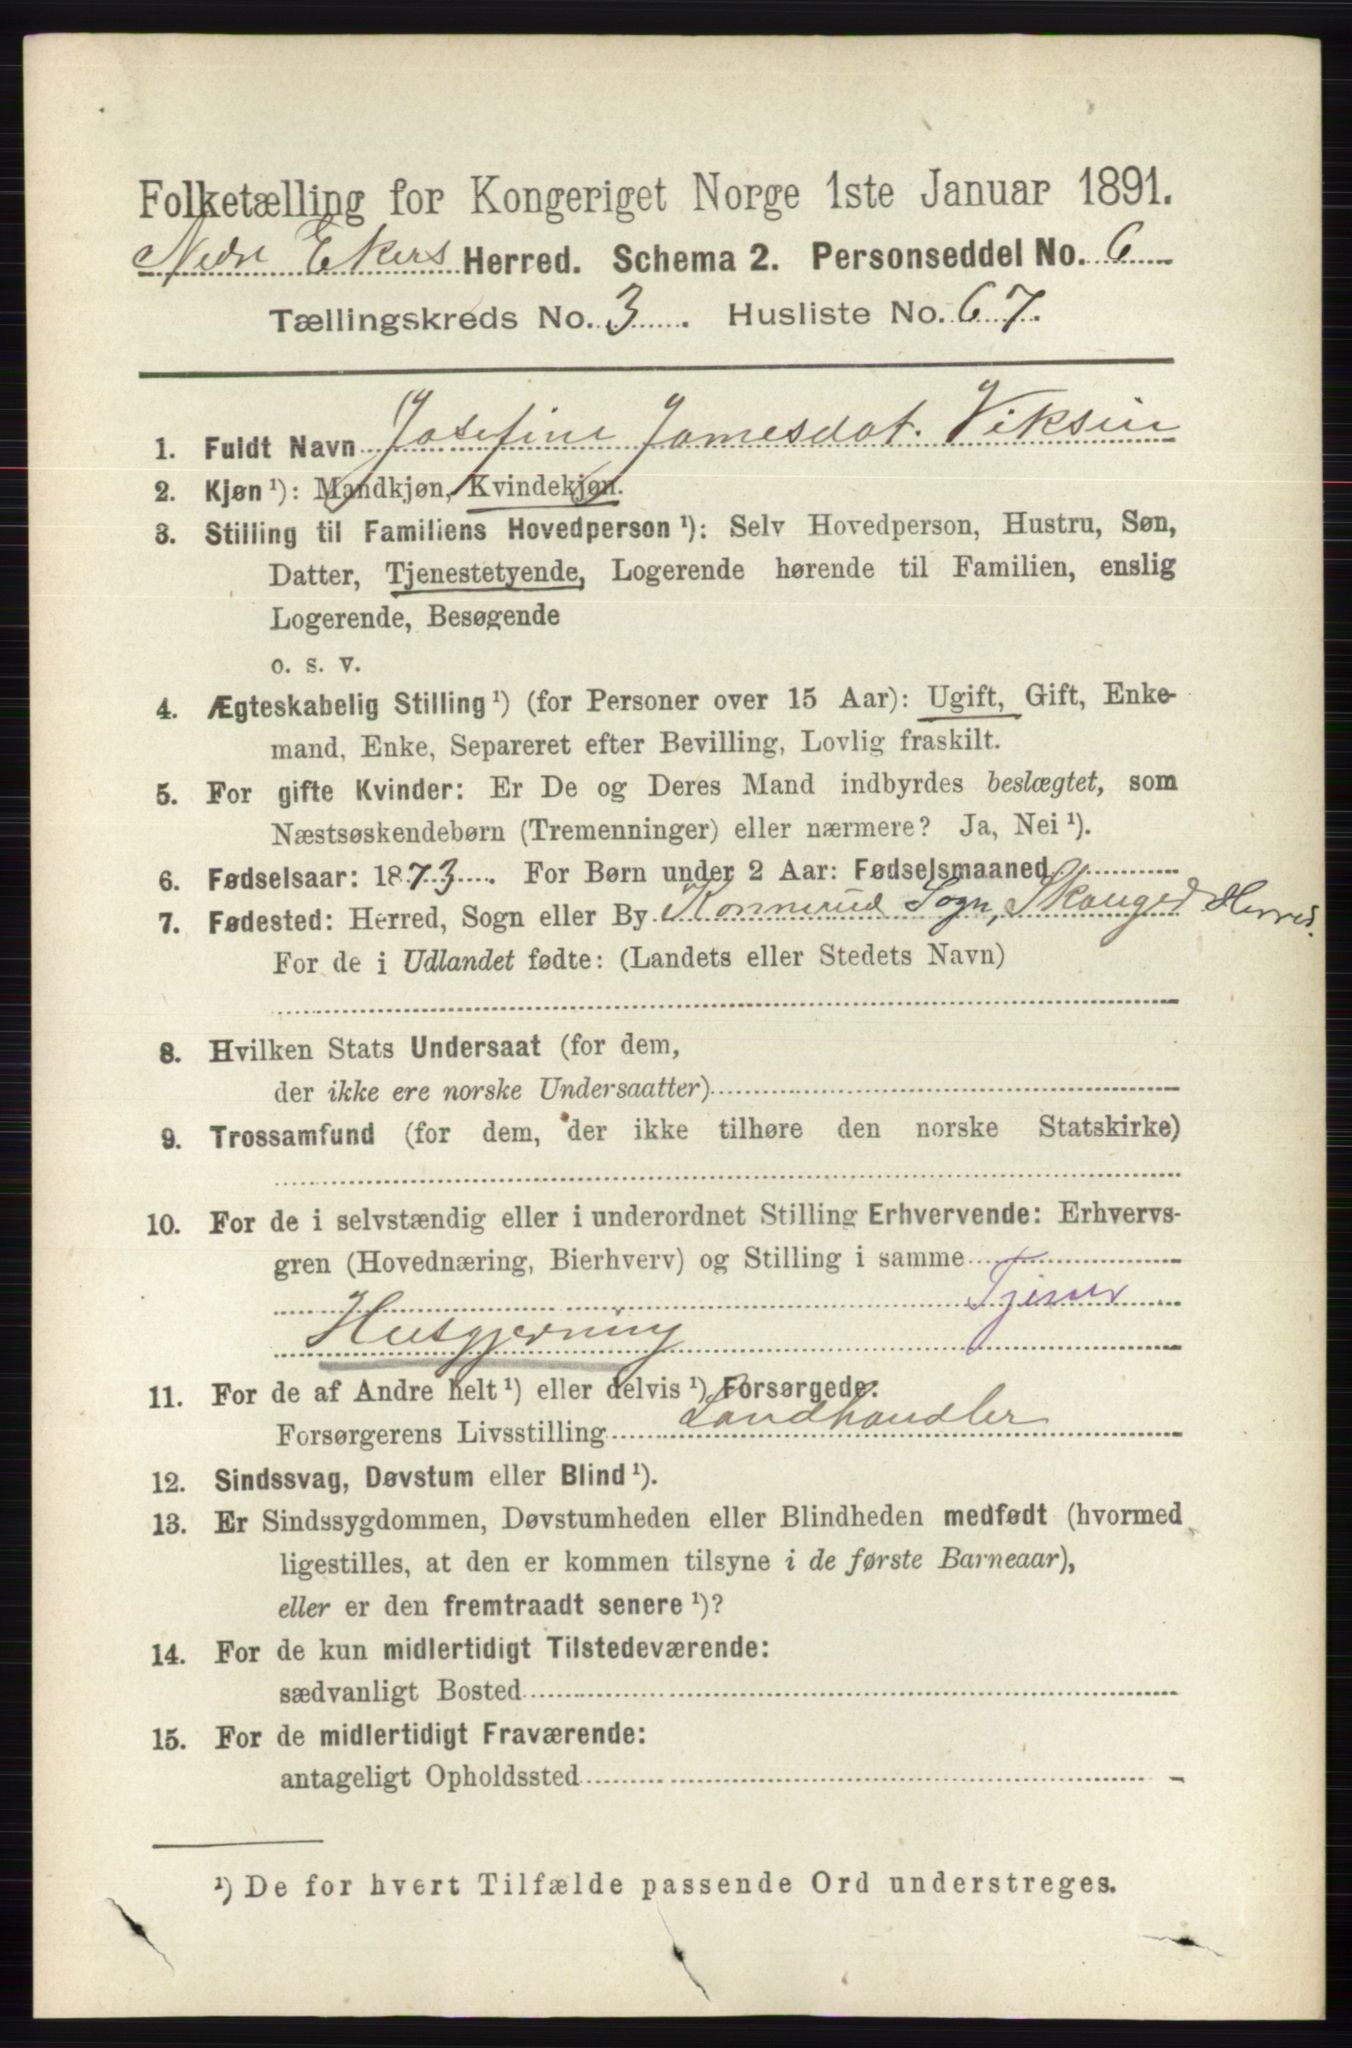 Folketælling for Kongeriget Norge 1ste Januar 1891.
Nedre Ekers Herred. Schema 2. Personseddel No. 6
Tællingskreds No. 3. Husliste No. 67.
1. Fuldt Navn Josefine Jamesdat. Viksün
2. Kjøn ¹): Mandkjøn, Kvindekjøn.
3. Stilling til Familiens Hovedperson ¹): Selv Hovedperson, Hustru, Søn,
Datter, Tjenestetyende, Logerende hørende til Familien, enslig
Logerende, Besøgende
o. s. v.
4. Ægteskabelig Stilling ¹) (for Personer over 15 Aar): Ugift, Gift, Enke-
mand, Enke, Separeret efter Bevilling, Lovlig fraskilt.
5. For gifte Kvinder: Er De og Deres Mand indbyrdes beslægtet, som
Næstsøskendebørn (Tremenninger) eller nærmere? Ja, Nei ¹).
6. Fødselsaar: 1873. For Børn under 2 Aar: Fødselsmaaned
7. Fødested: Herred, Sogn eller By Konnerud Sogn, Skouger Herred.
For de i Udlandet fødte: (Landets eller Stedets Navn)
8. Hvilken Stats Undersaat (for dem,
der ikke ere norske Undersaatter)
9. Trossamfund (for dem, der ikke tilhøre den norske Statskirke)
10. For de i selvstændig eller i underordnet Stilling Erhvervende: Erhvervs-
gren (Hovednæring, Bierhverv) og Stilling i samme
Tjener
Husgjerning
11. For de af Andre helt ¹) eller delvis ¹) Forsørgede:
Forsørgerens Livsstilling Landhandler
12. Sindssvag, Døvstum eller Blind ¹).
13. Er Sindssygdommen, Døvstumheden eller Blindheden medfødt (hvormed
ligestilles, at den er kommen tilsyne i de første Barneaar),
eller er den fremtraadt senere ¹)?
14. For de kun midlertidigt Tilstedeværende:
sædvanligt Bosted
15. For de midlertidigt Fraværende:
antageligt Opholdssted
¹) De for hvert Tilfælde passende Ord understreges.